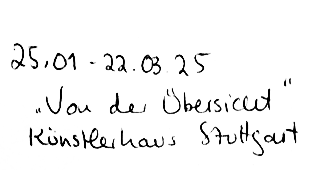 25.01 - 22.03 25
„Von der Übersicht"
Künstlerhaus Stuttgart